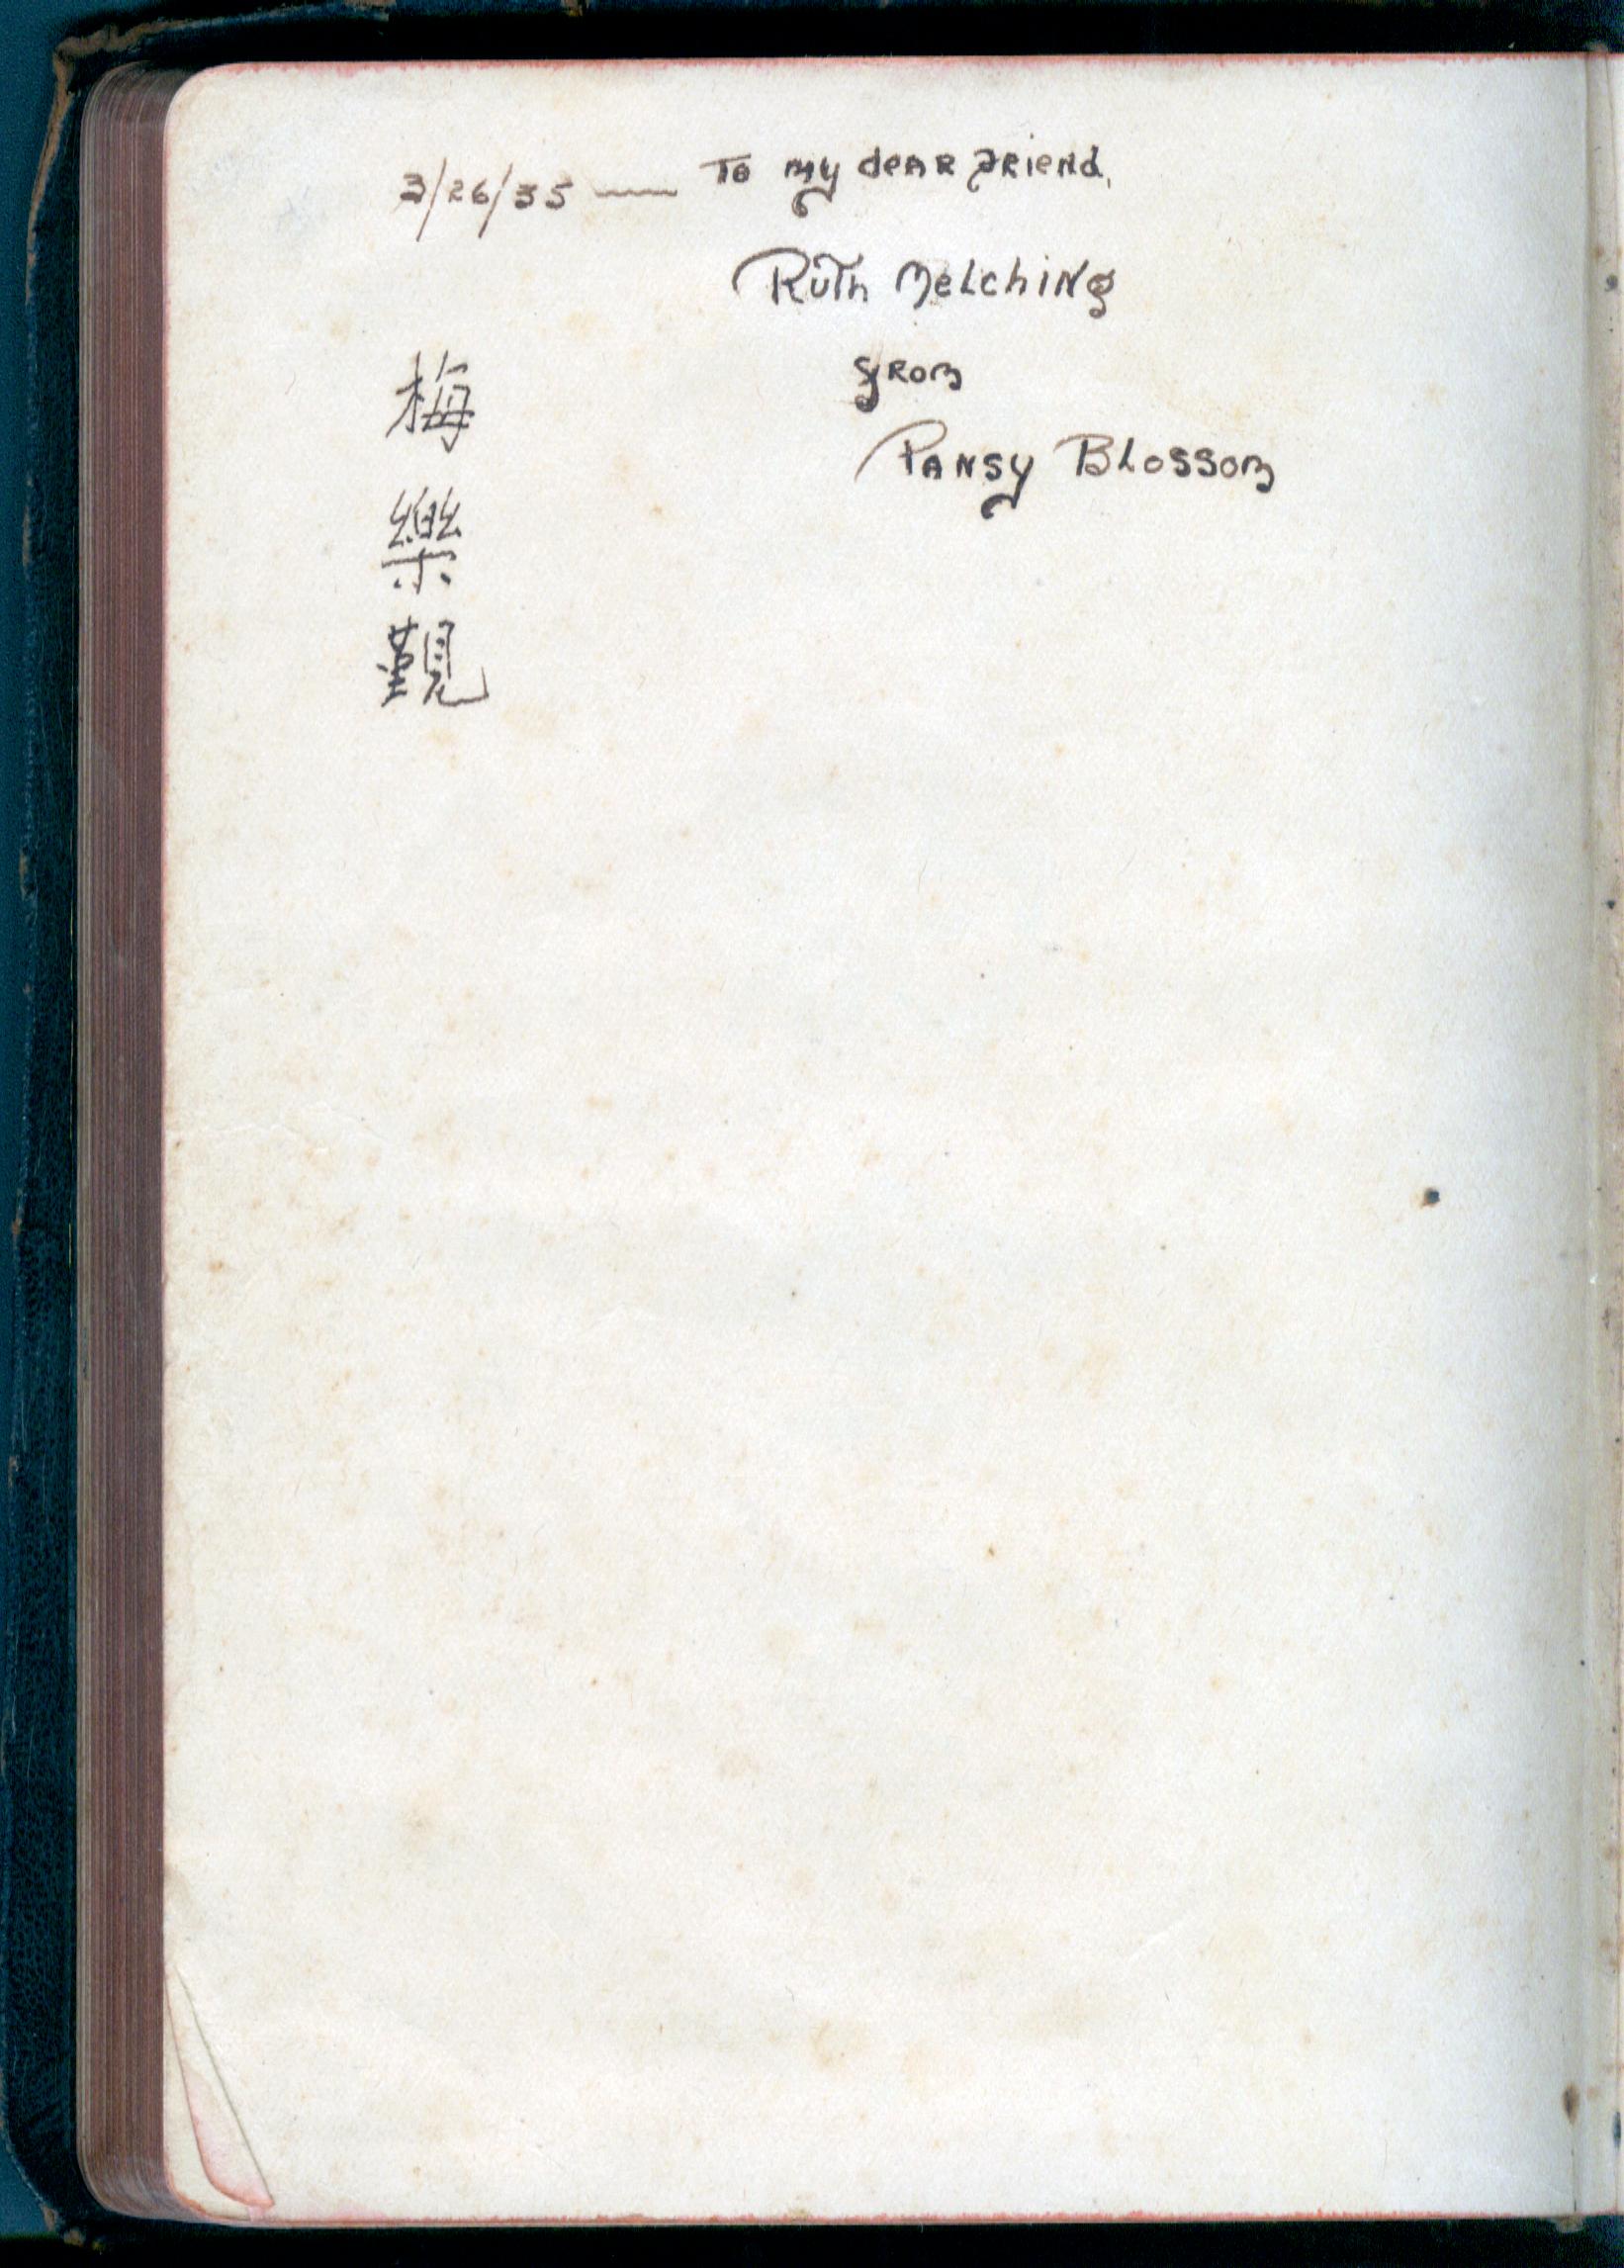 3/26/35 — To my dear friend,
Ruth Melching
from
Pansy Blossom
梅
樂
觀